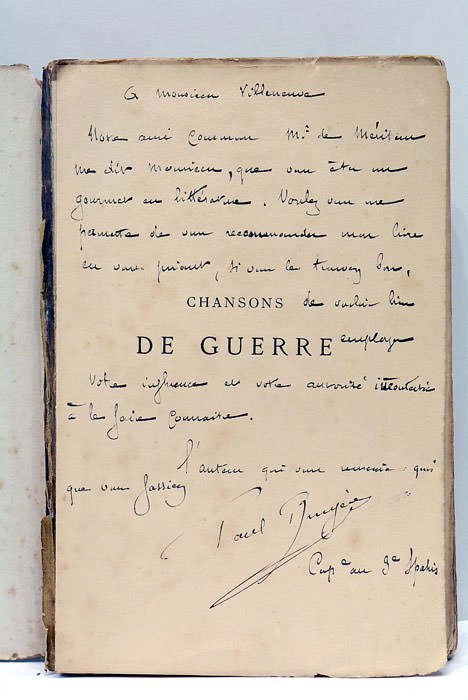 A Monsieur Villeneuve
Notre ami commun Mr de Méritens
me dit Monsieur, que vous êtes un
gourmet en littérature. Voulez vous me
permettre de vous recommander mon livre
en vous priant, si vous le trouvez bon,
CHANSONS de vouloir bien
DE GUERRE employer
Votre influence et votre autorité incontestée
à le faire connaitre.
l'auteur qui vous remercie quoi
que vous fassiez
Paul
Capne au 3e Spahis